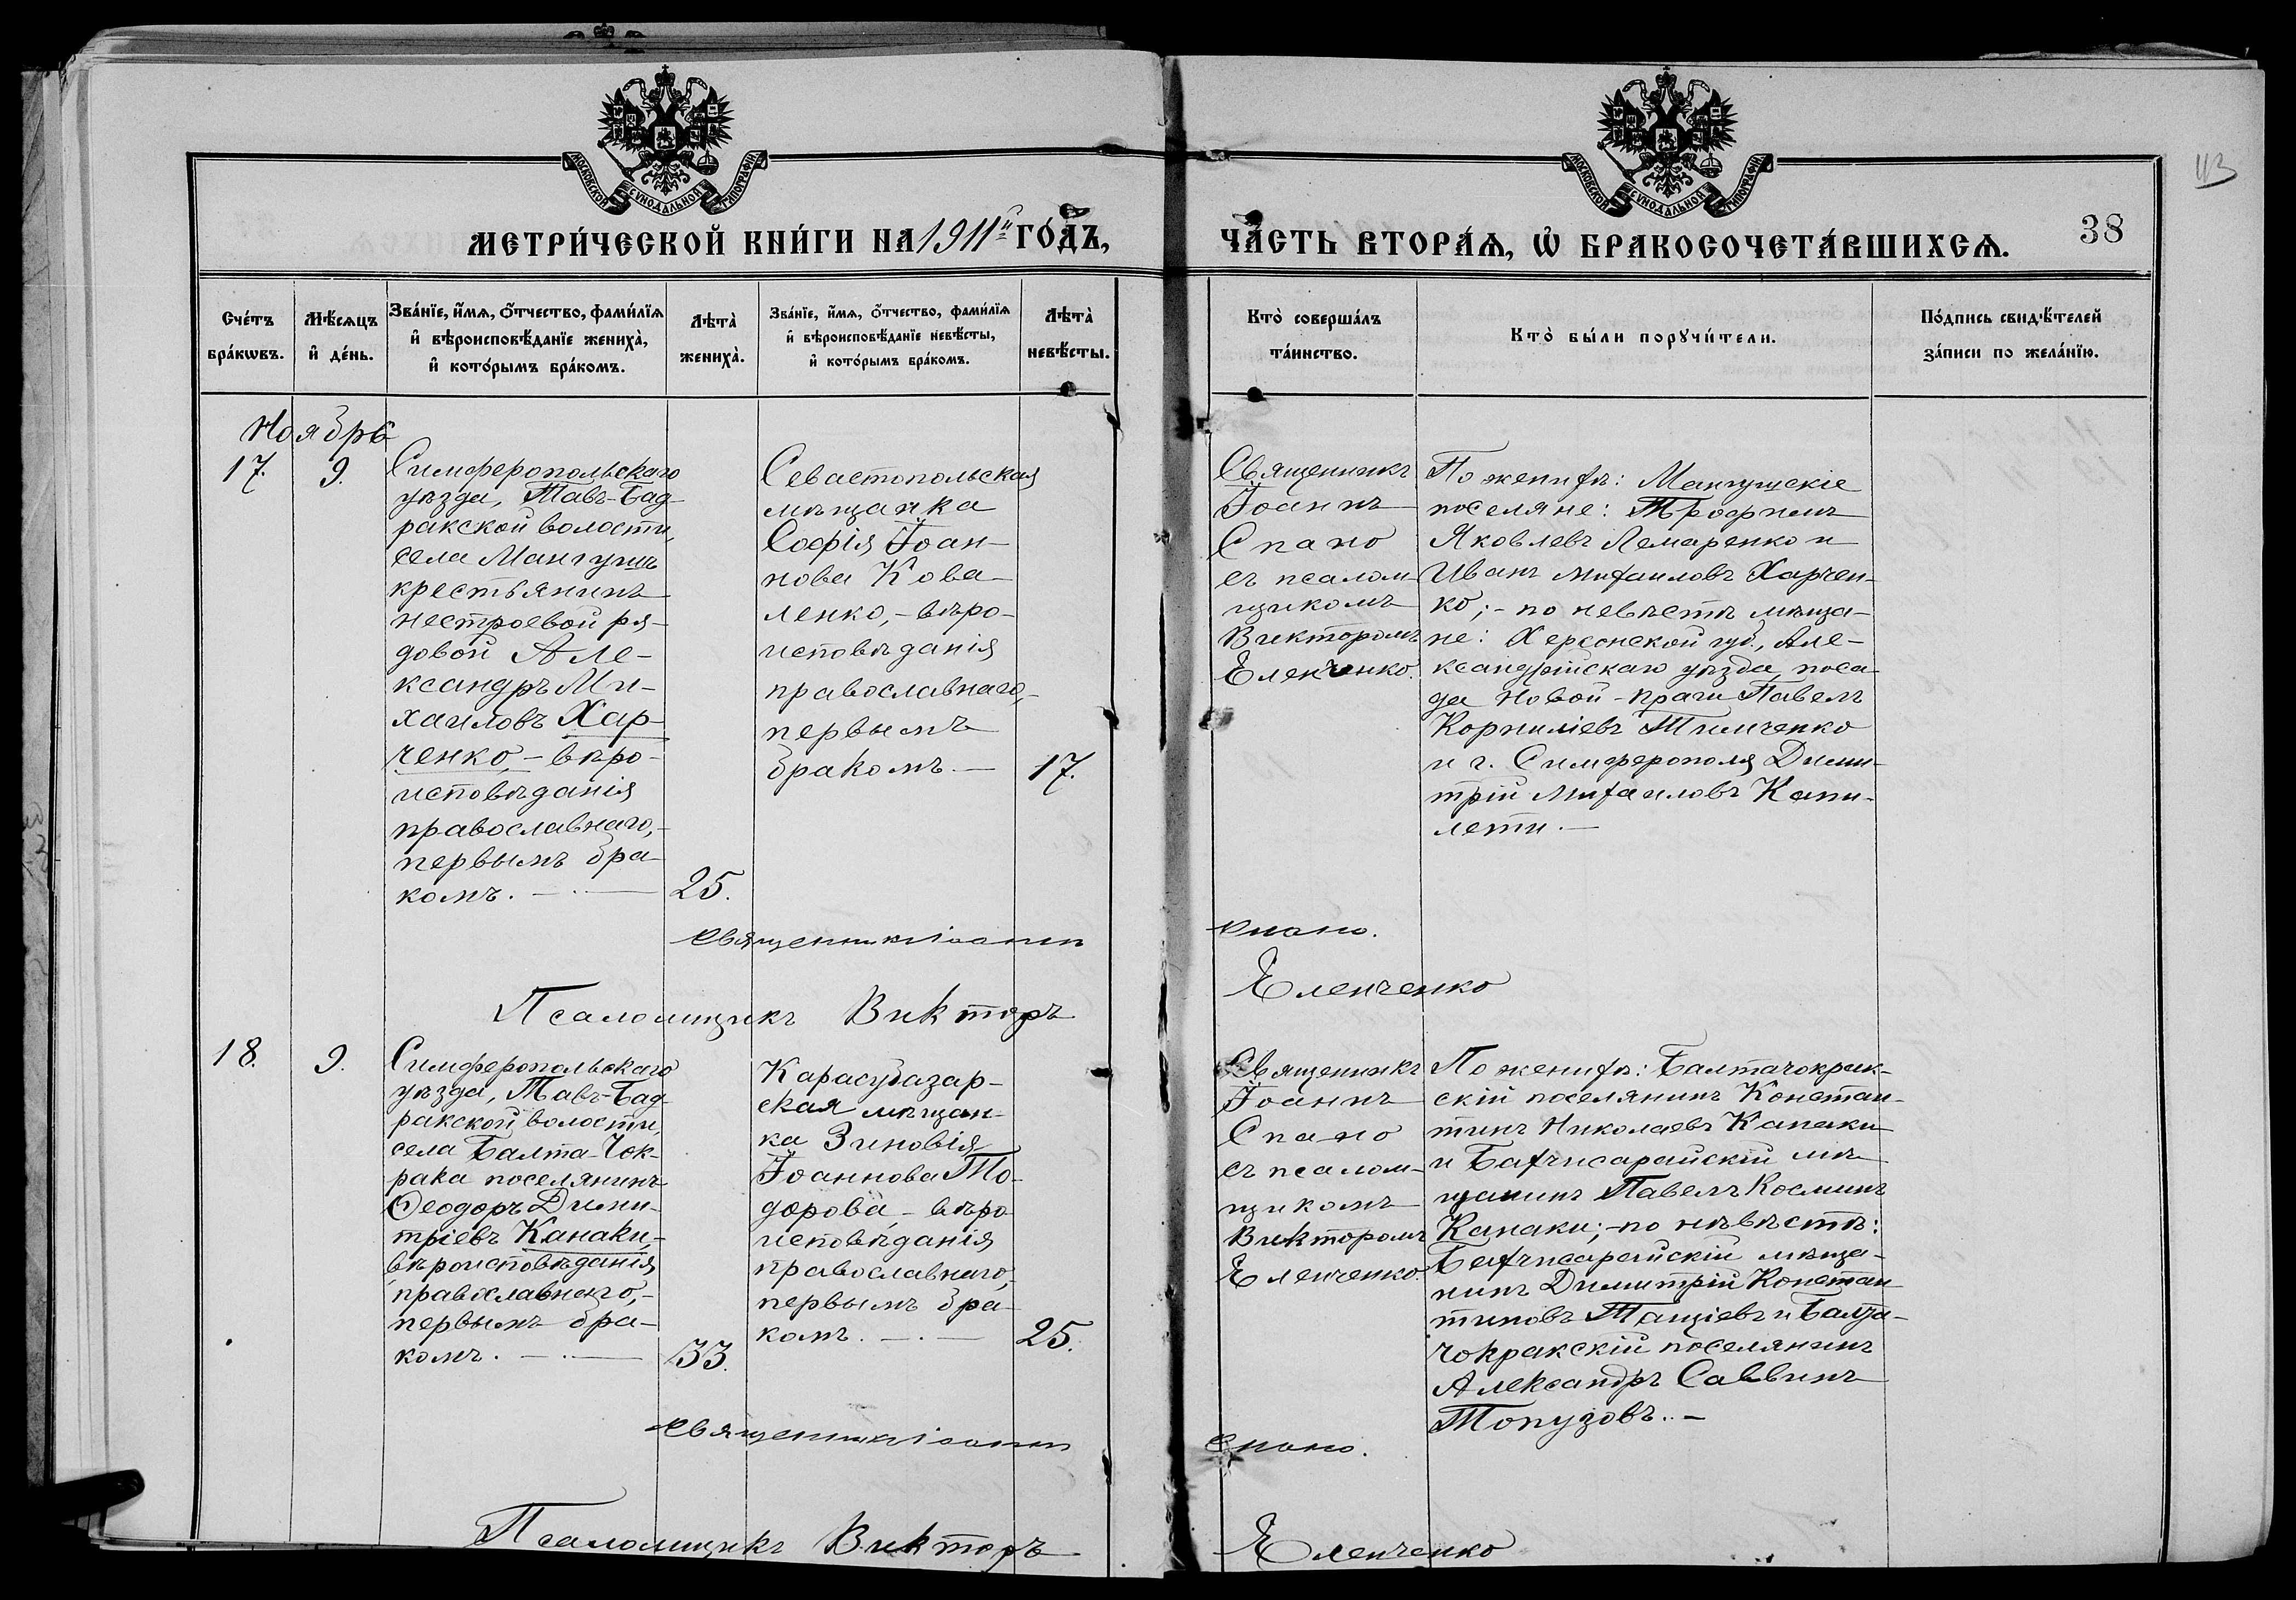 МОСКОВСКОЙ СѴНОДАЛЬНОЙ ТИПОГРАФІИ
МОСКОВСКОЙ СѴНОДАЛЬНОЙ ТИПОГРАФІИ
113
МЕТРИ́ЧЕСКОЙ КНИ́ГИ НА 1911й ГО́ДЪ,
ЧА́СТЬ ВТОРА́Ѧ, Ѡ҆ БРАКОСОЧЕТА́ВШИХСѦ.
38
Сче́тъ бра́кѡвъ.
Мѣ́сѧцъ и҆ де́нь.
Зва́нїе, и҆́мѧ, ѻ҆́тчество, фами́лїѧ и҆ вѣроисповѣ́данїе жениха̀, и҆ кото́рымъ бра́комъ.
Лѣта̀ жениха̀.
Зва́нїе, и҆́мѧ, ѻ҆́тчество, фами́лїѧ и҆ вѣроисповѣ́данїе невѣ́сты, и҆ кото́рымъ бра́комъ.
Лѣта̀ невѣ́сты.
Кто̀ соверша́лъ та́инство.
Кто̀ бы́ли порꙋчи́тели.
По́дпись свидѣ́телей за́писи по жела́нїю.
Ноябрь
17.
9.
Симферопольскаго
уѣзда, Тавъ-Бад-
ракской волости,
села Мангушъ
крестьянинъ
нестроевой ря-
довой Але-
ксандръ Ми-
хаиловъ Хар-
ченко,- вѣро-
исповѣданія
православнаго,-
первымъ бра-
комъ.
25.
Севастопольская
мѣщанка
Софія Іоан-
нова Кова-
ленко,- вѣро-
исповѣданія
православнаго,-
первымъ
бракомъ.
17.
Священникъ
Іоаннъ
Спано
съ псалом-
щикомъ
Викторомъ
Еленченко.
По женихѣ: Мангушскіе
поселяне: Трофимъ
Яковлевъ Лемаренко и
Иванъ Михаиловъ Харчен-
ко;- по невѣстѣ мѣща-
не: Херсонской губ., Але-
ксандрійскаго уѣзда, поса-
да Новой-Праги Павелъ
Корниліевъ Тимченко
и г. Симферополя Дими-
трій Михаиловъ Капи-
лети.
Священникъ Іоаннъ Спано.
Псаломщикъ Викторъ Еленченко
18.
9.
Симферопольскаго
уѣзда, Тавъ-Бад-
ракской волости,
села Балта-Чок-
рака поселянинъ
Ѳеодоръ Дими-
тріевъ Канаки,-
вѣроисповѣданія
православнаго,-
первымъ бра-
комъ.
33.
Карасубазар-
ская мѣщан-
ка Зиновія
Іоаннова То-
дорова,- вѣро-
исповѣданія
православнаго,-
первымъ бра-
комъ.
25.
Священникъ
Іоаннъ
Спано
съ псалом-
щикомъ
Викторомъ
Еленченко.
По женихѣ: Балтачокрак-
скій поселянинъ Констан-
тинъ Николаевъ Канаки
и Бахчисарайскій мѣ-
щанинъ Павелъ Косминъ
Канаки;- по невѣстѣ:
Бахчисарайскій мѣща-
нинъ Димитрій Констан-
тиновъ Тащіевъ и Балта-
чокракскій поселянинъ
Александръ Саввинъ
Топузовъ.
Священникъ Іоаннъ Спано.
Псаломщикъ Викторъ Еленченко